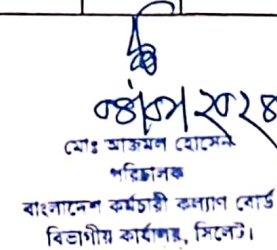 মোঃ আকমল হোসেন
পরিচালক
বাংলাদেশ কর্মচারী কল্যাণ বোর্ড
বিভাগীয় কার্যালয়, সিলেট।